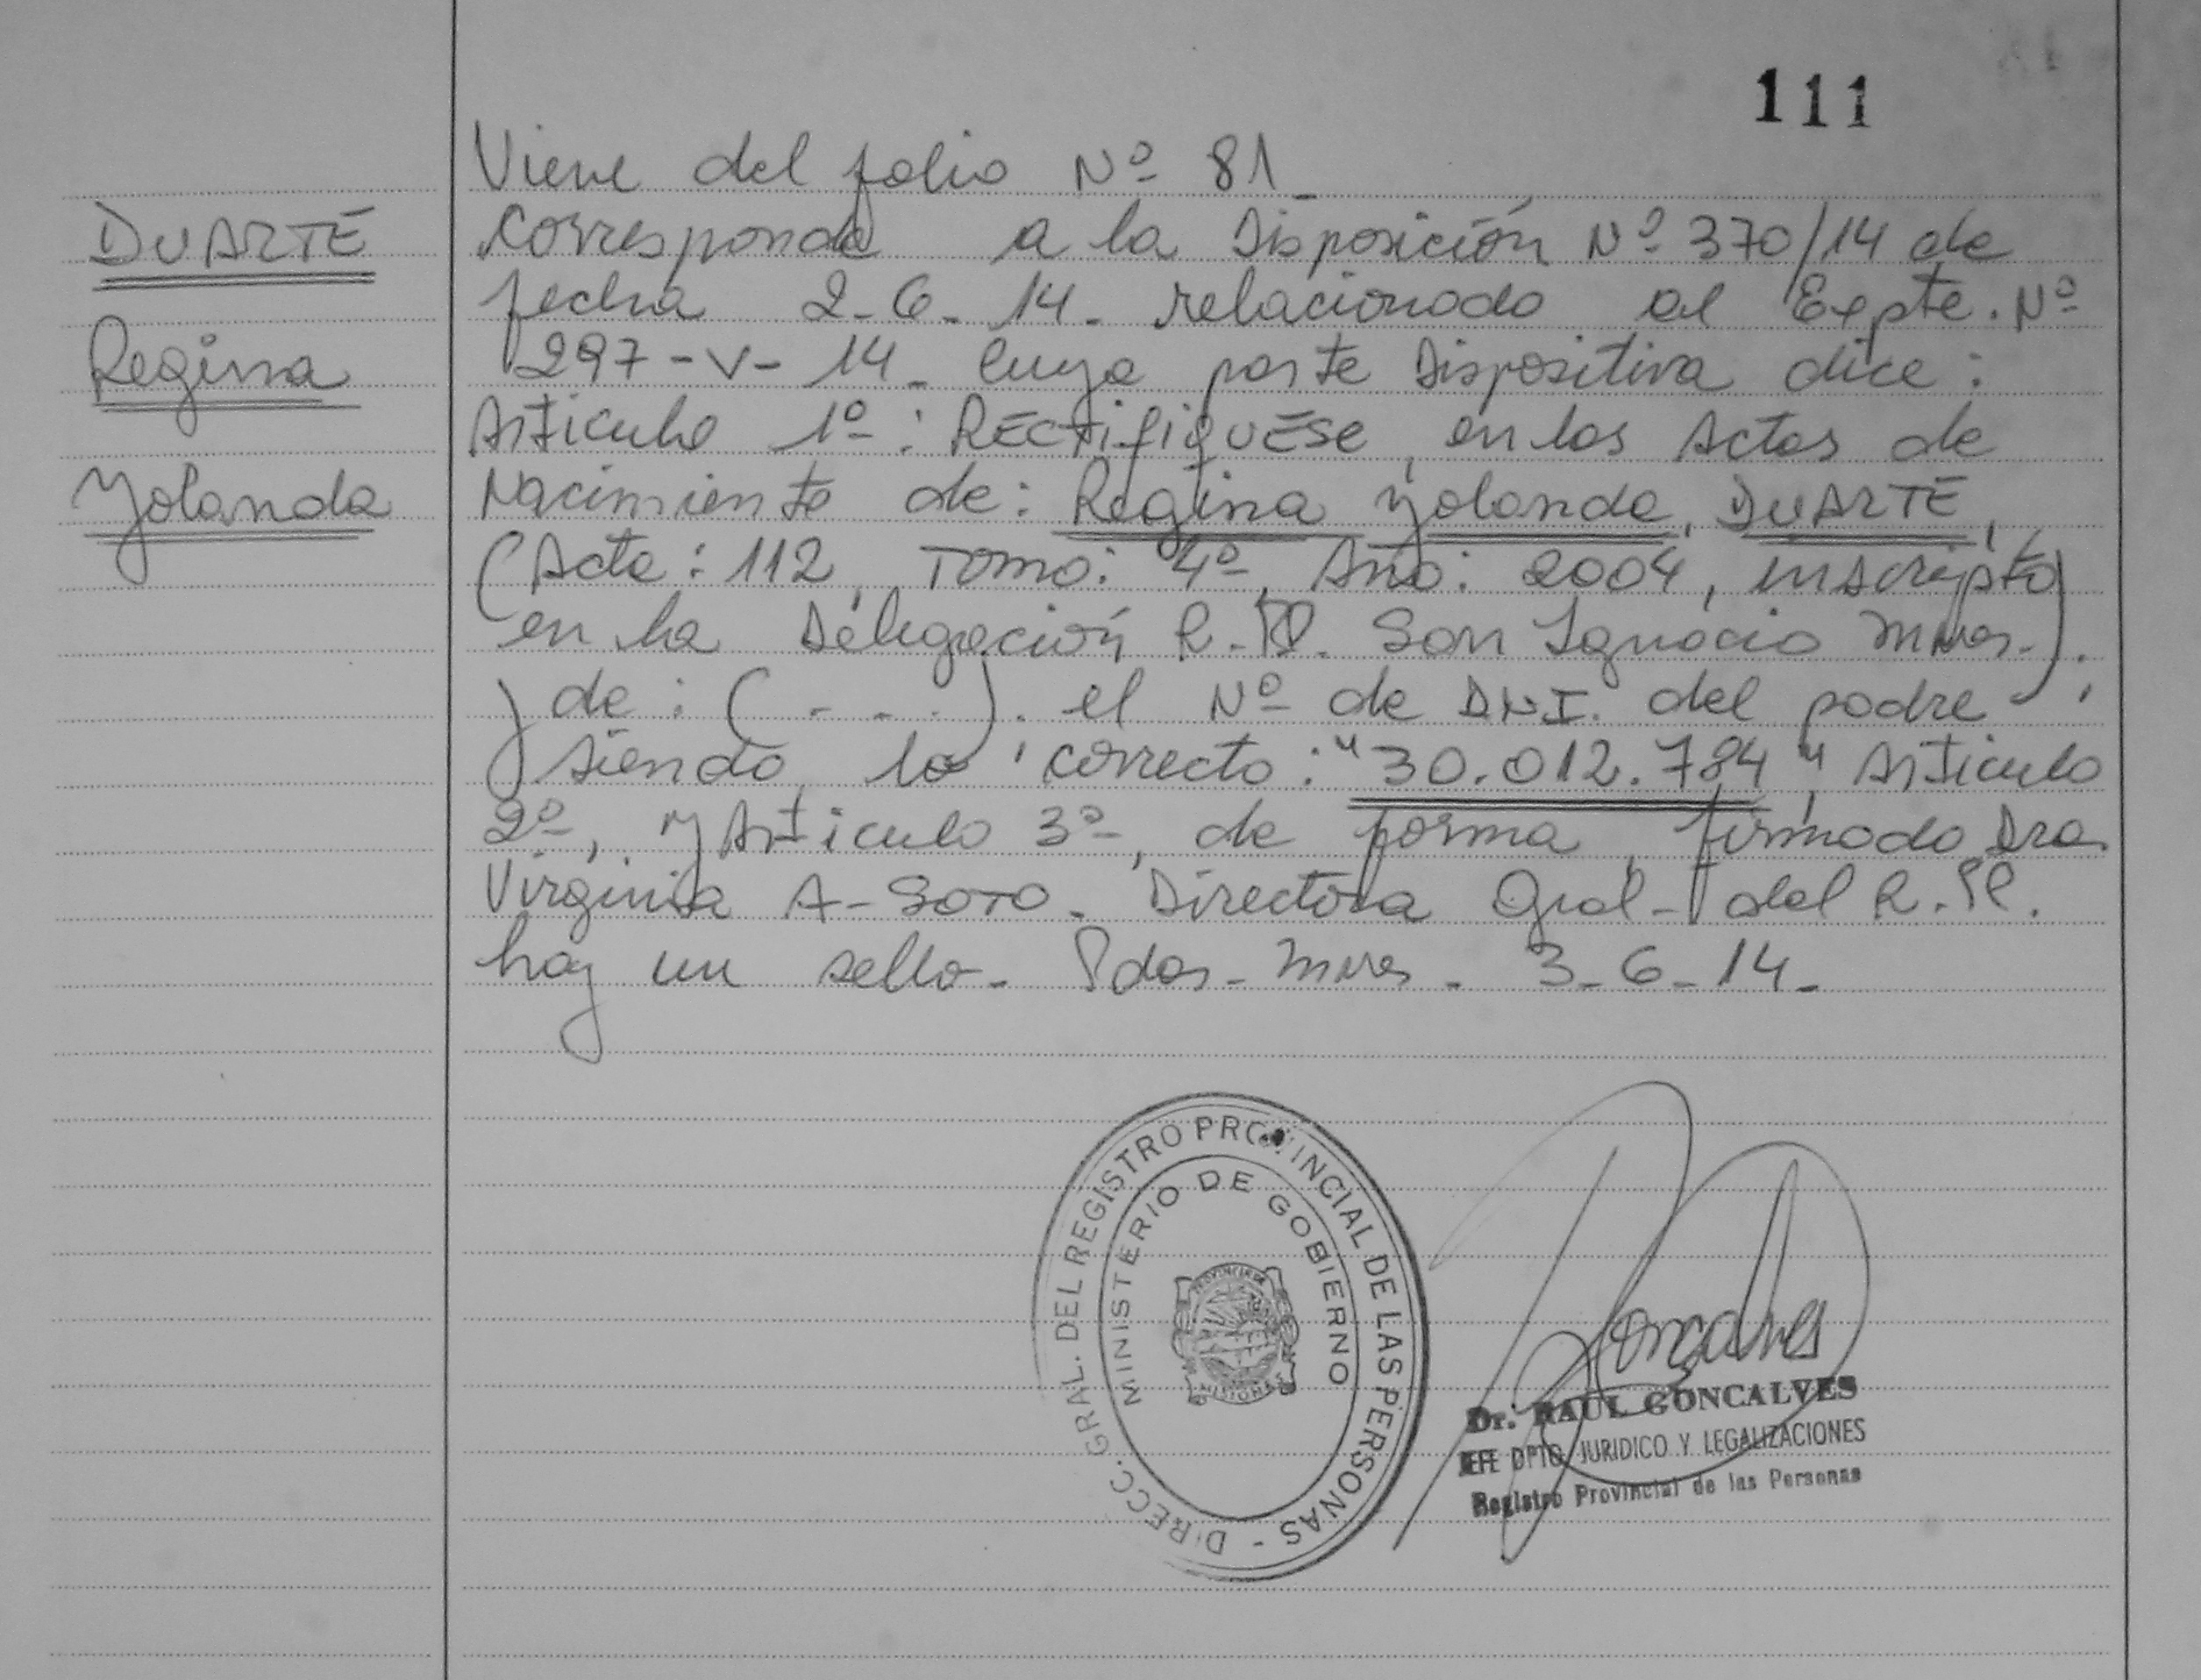 111
Viene del folio Nº 81_
DUARTE
Corresponde a la Disposición Nº 370/14 de
fecha 2-6-14- relacionado al Expte. Nº
Regina
297-V-14- cuya parte Dispositiva dice:
Articulo 1º: RECTIFIQUESE, en los Actas de
Yolanda
Nacimiento de: Regina Yolanda, DUARTE,
(Acta: 112, Tomo: 4º, Año: 2004, inscripto
en la Delegación R.P. San Ignacio Mnes.).
de: (- - -). el Nº de DNI. del padre,
siendo lo correcto: "30.012.784", Articulo
2º, y Articulo 3º, de forma, firmado Dra.
Virginia A- SOTO- Directora Gral- del R.P.
hay un sello- Pdas- Mnes- 3-6-14-
DIRECC. GRAL. DEL REGISTRO PROVINCIAL DE LAS PERSONAS -
MINISTERIO DE GOBIERNO
PROVINCIA DE
MISIONES
Goncalves
Dr. RAUL GONCALVES
JEFE DPTO JURIDICO Y LEGALIZACIONES
Registro Provincial de las Personas